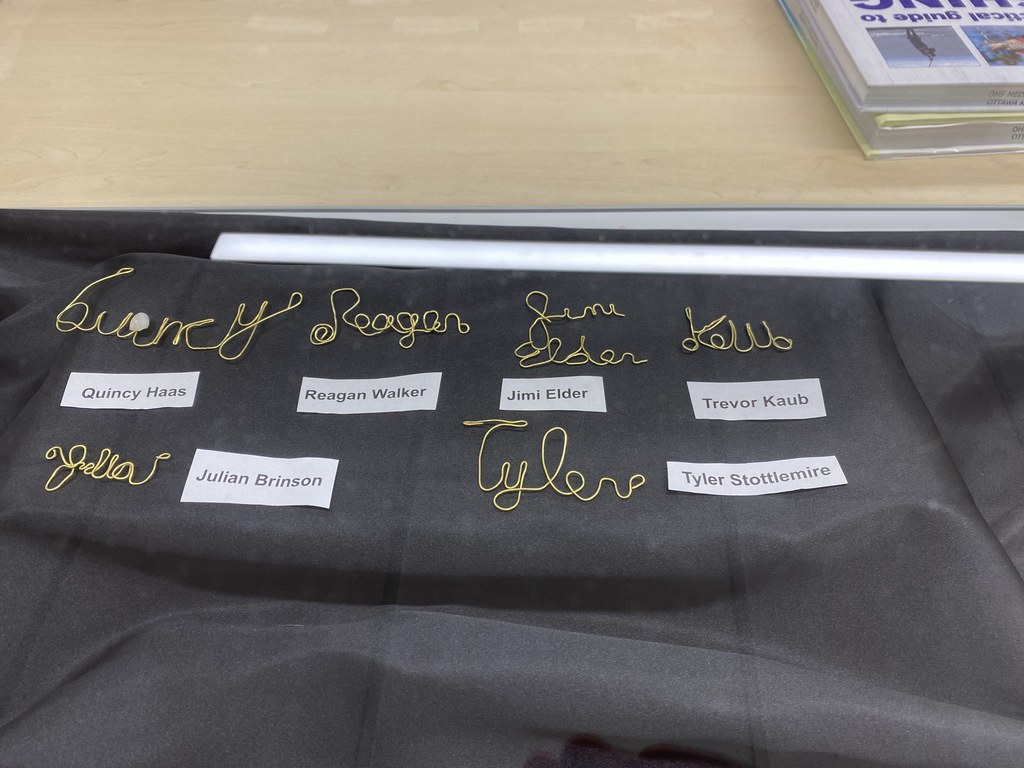 tical guide to
OTTAWA
Quincy
Reagan
Jimi
Elder
Quincy Haas
Reagan Walker
Jimi Elder
Trevor Kaub
Tyler
Julian Brinson
Tyler Stottlemire